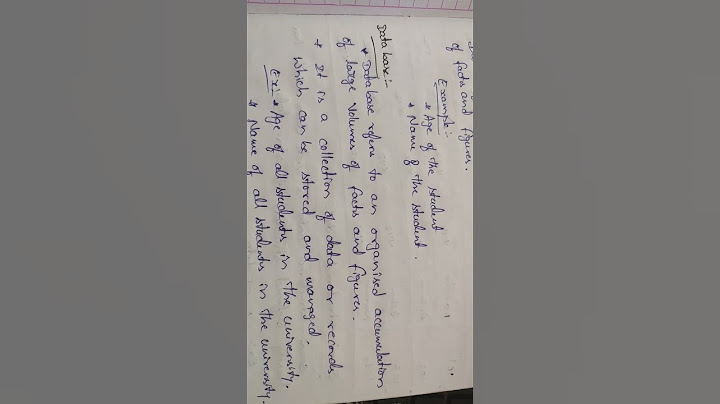 of facts and figures.
Example:-
* Age of the student
* Name of the student.
Database:-
* Database refers to an organised accumulation
of large volumes of facts and figures.
* It is a collection of data or records
which can be stored and managed.
Ex:- * Age of all students in the university.
* Name of all students in the university.